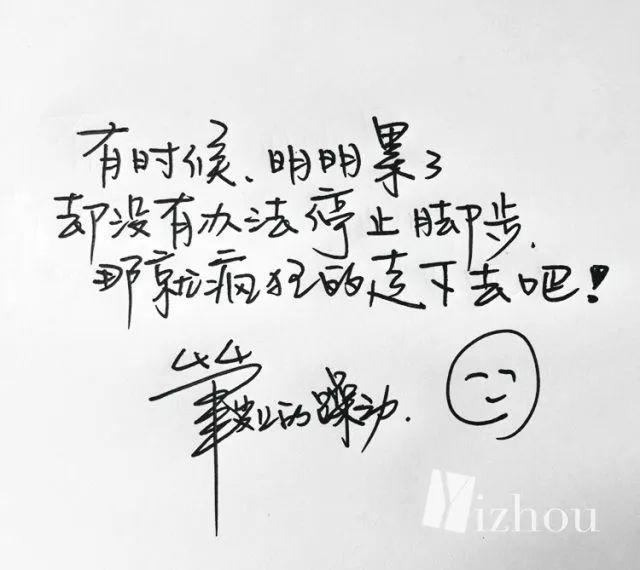 有时候、明明累了
却没有办法停止脚步.
那就疯狂的走下去吧!
的躁动.
Yizhou